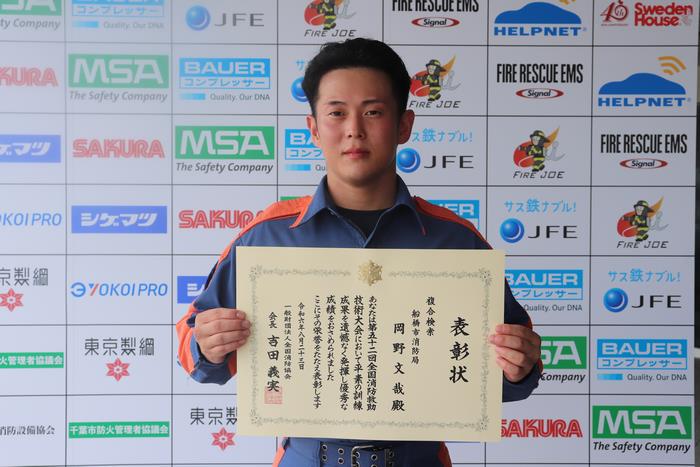 表彰状
複合検索
船橋市消防局
岡野文哉殿
あなたは第五十二回全国消防救助
技術大会において平素の訓練
成果を遺憾なく発揮し優秀な
成績をおさめられました
ここにその栄誉をたたえ表彰します
令和六年八月二十三日
一般財団法人全国消防協会
会長 吉田義実
BAUER
コンプレッサー
Quality. Our DNA
JFE
FIRE JOE
FIRE RESCUE EMS
Signal
HELPNET
40th
Sweden House
SAKURA
MSA
The Safety Company
BAUER
コンプレッサー
Quality. Our DNA
サス
FIRE JOE
FIRE RESCUE EMS
Signal
HELPNET
シゲマツ
SAKURA
MSA
The Safety Company
BAUER
コンプレッサー
Quality. Our
サス鉄ナブル!
JFE
FIRE JOE
FIRE RESCUE EMS
Signal
YOKOI PRO
シゲマツ
SAKURA
サス鉄ナブル!
JFE
FIRE JOE
東京製綱
YOKOI PRO
BAUER
コンプレッサー
Quality. Our DNA
サス鉄ナブル!
JFE
防火管理者協議会
東京製綱
BAUER
コンプレッサー
Quality. Our DNA
消防設備協会
千葉市防火管理者協議会
東京製綱
SAKURA
MSA
The Safety Company